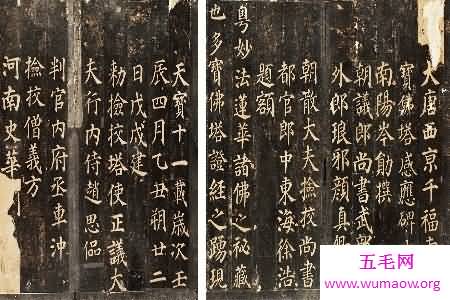 大唐西京千福
寶佛塔感應碑
南陽岑勛撰
朝議郎尚書武部
外郎琅邪顏真卿
朝散大夫撿挍尚書
都官郎中東海徐浩
題額
粵妙法蓮華諸佛之秘藏
也多寶佛塔證經之踴現
天寶十一載歲次壬
辰四月乙丑朔廿二
日戊戌建
勑撿挍塔使正議大
夫行內侍趙思侃
判官內府丞車沖
撿挍僧義方
河南史華
五毛网
www.wumaow.org